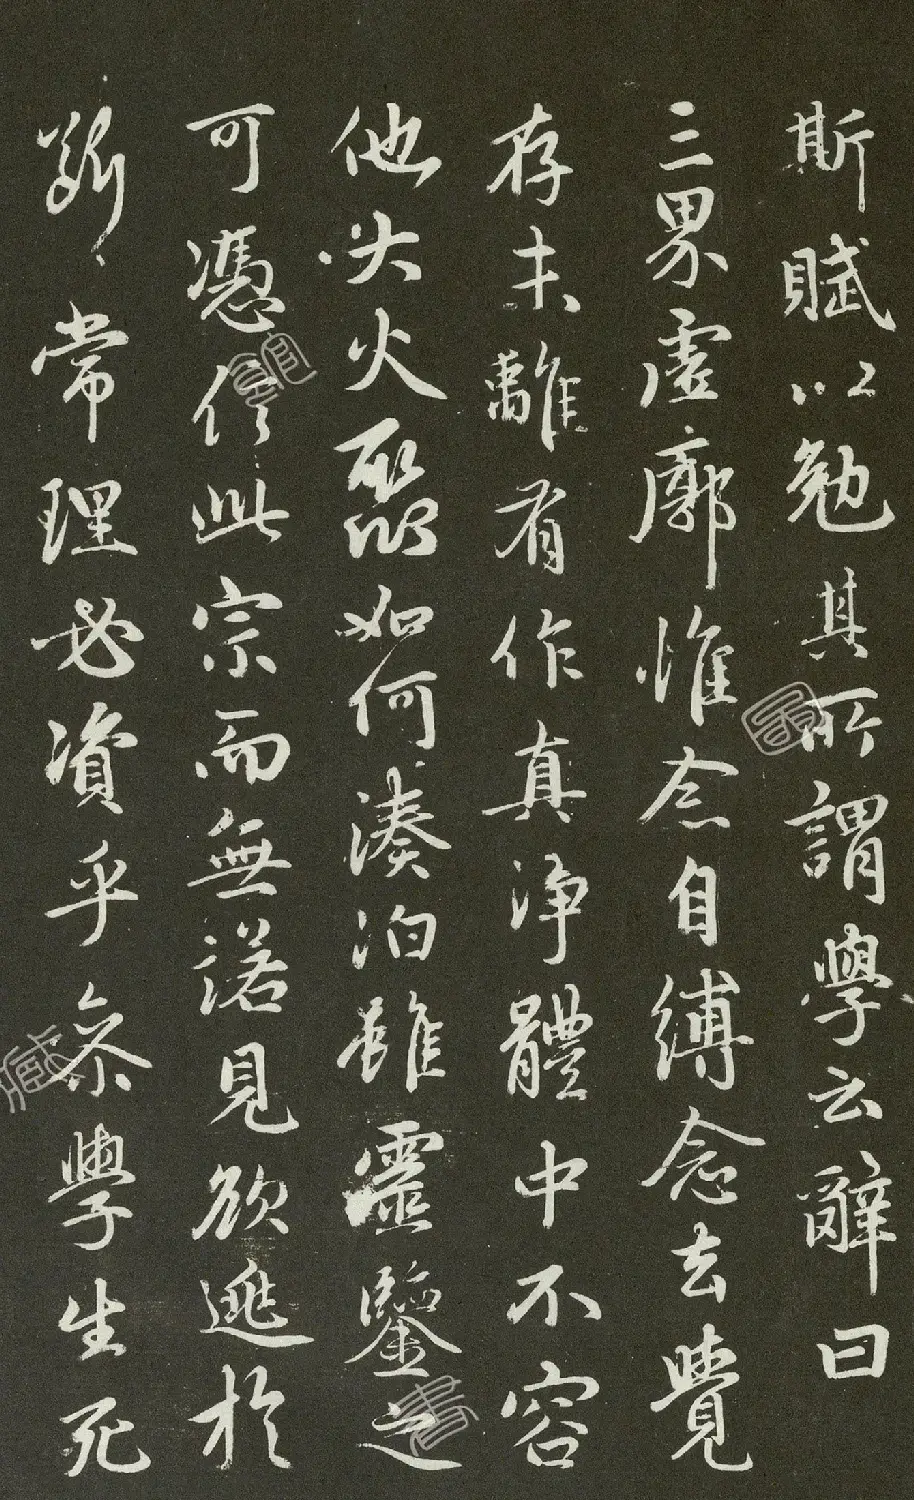 斯賦以勉其所謂學云辭曰
三界虛廓惟念自縛念去覺
存未離有作真淨體中不容
他火聚如何湊泊雖靈鑒之
可憑信此宗而無諾見欲逃於
斷常理必資乎參學生死